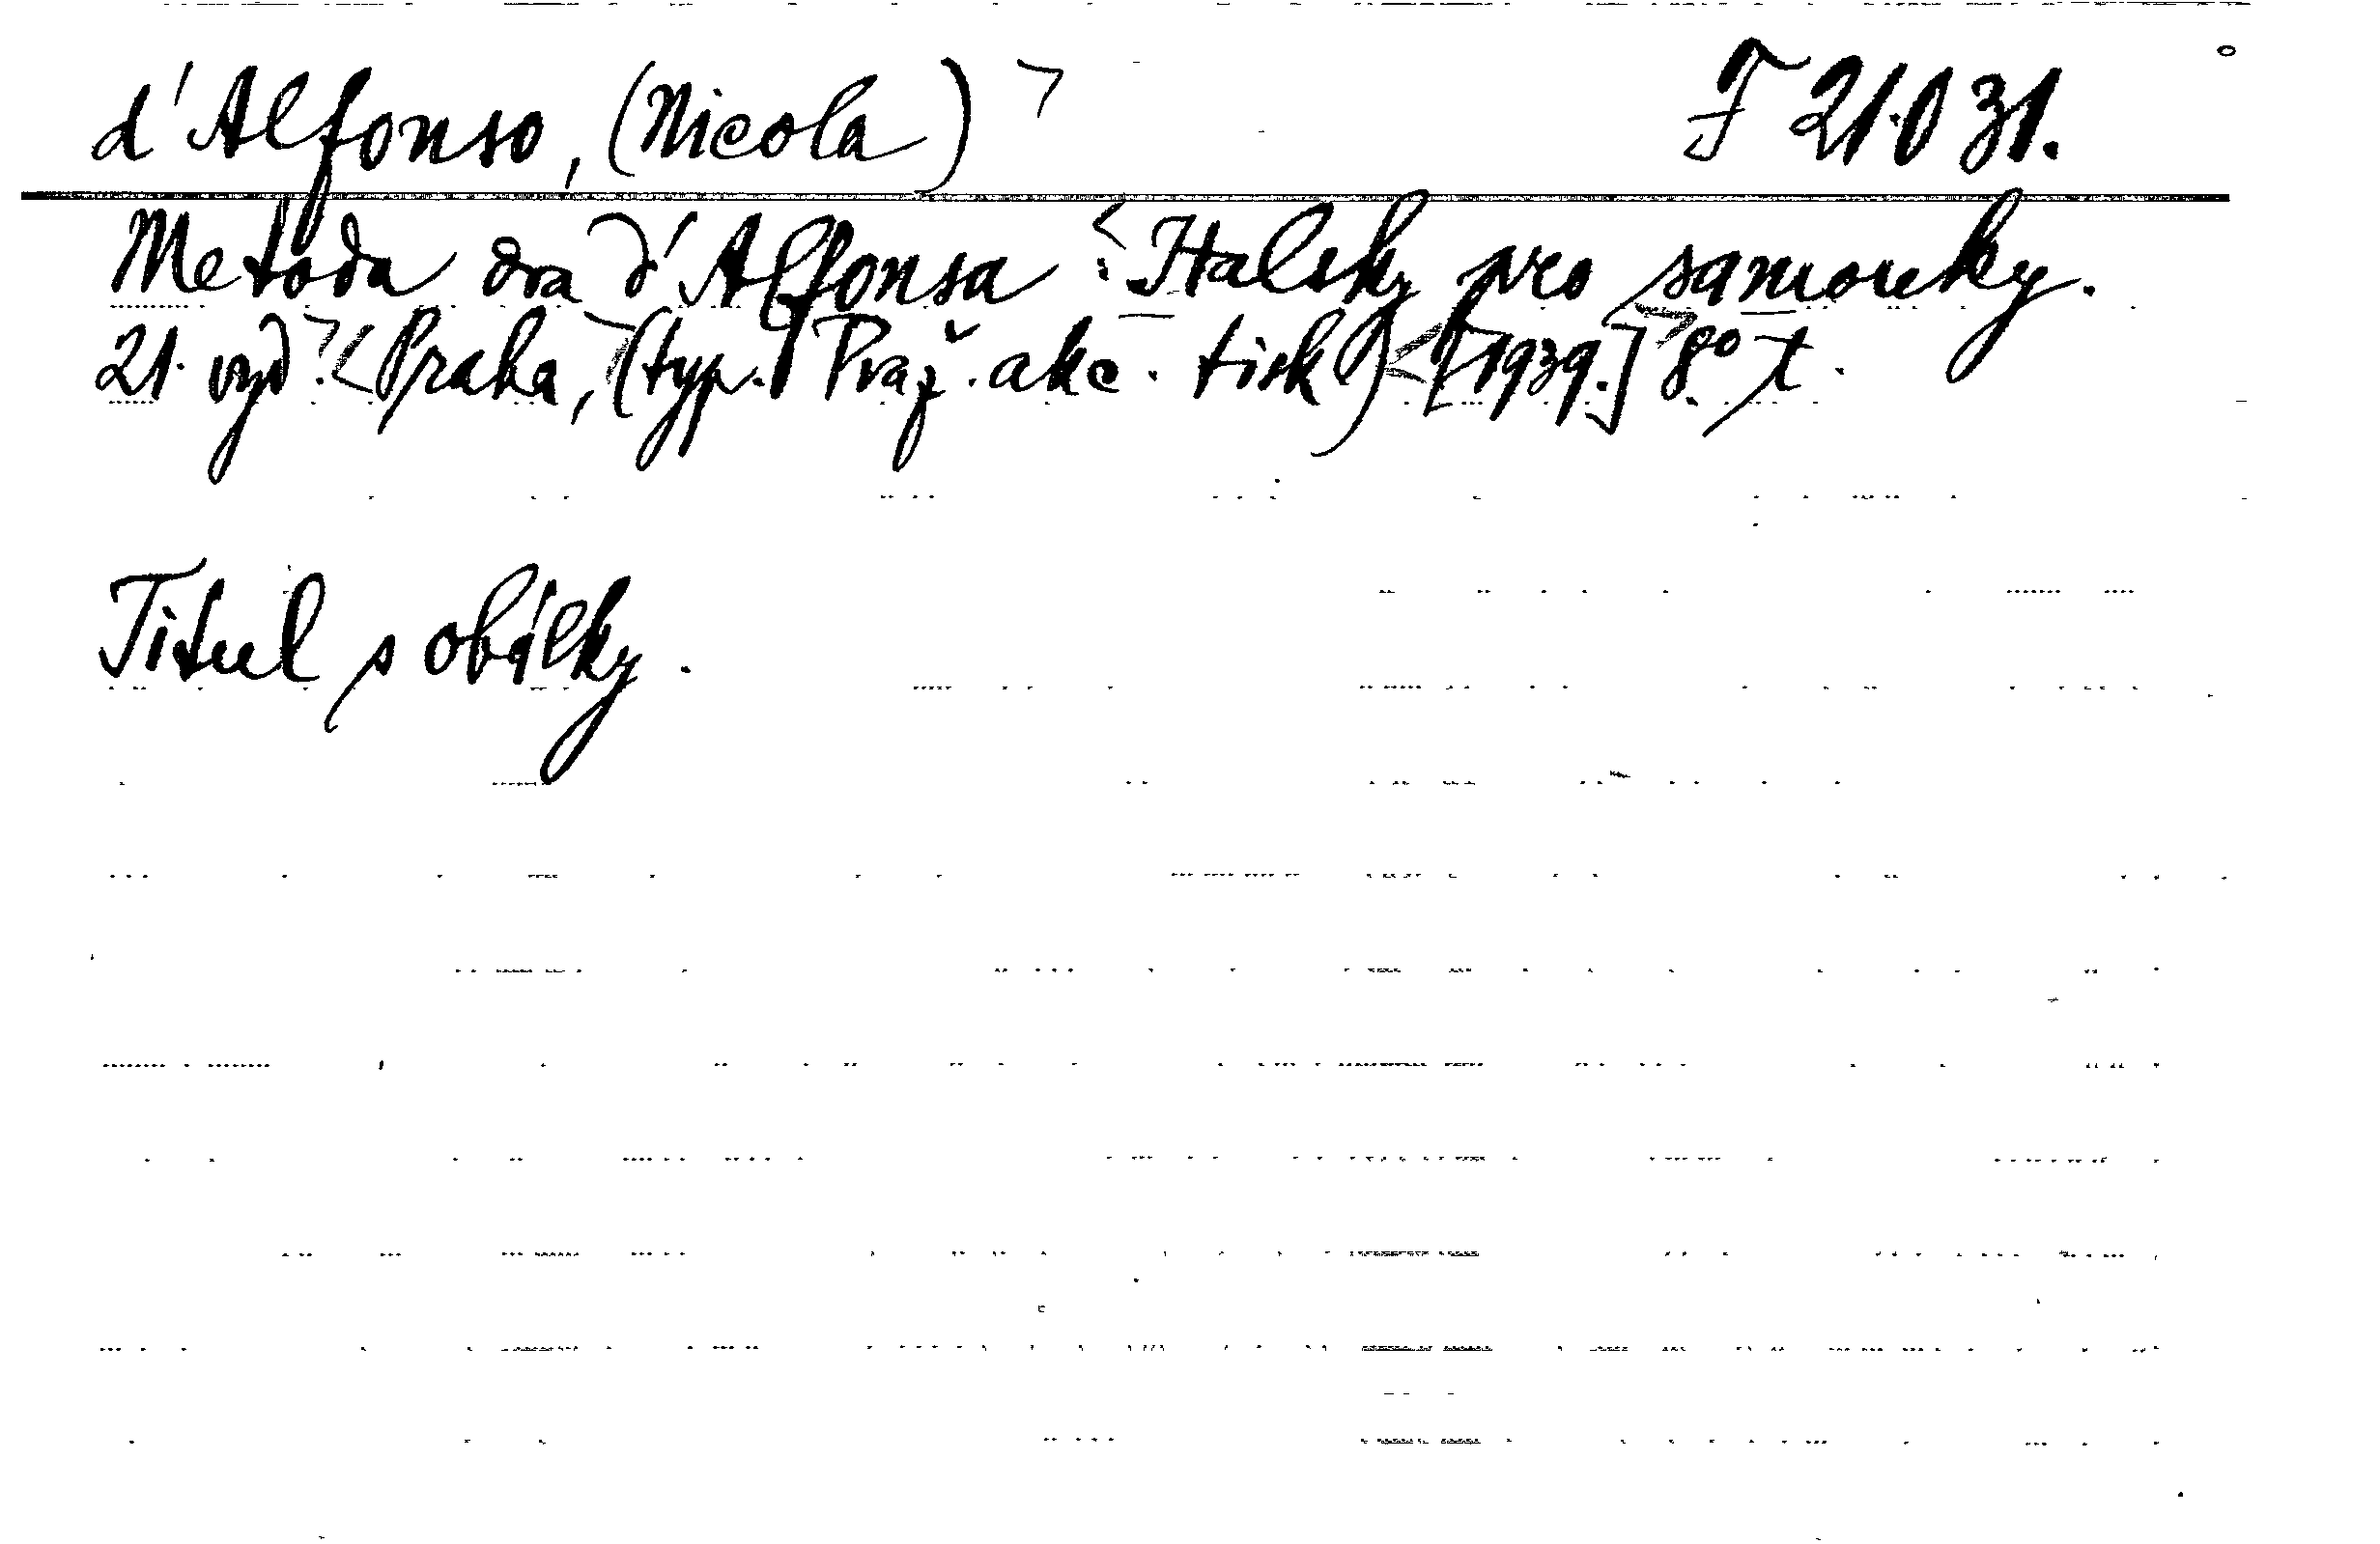 d'Alfonso, (Nicola) F 21.031.
Metoda dra d'Alfonsa: Italsky pro samouky.
21. vyd. Praha, (typ. Praž. akc. tisk) [1939.] 8° t.
Titul s obálky.